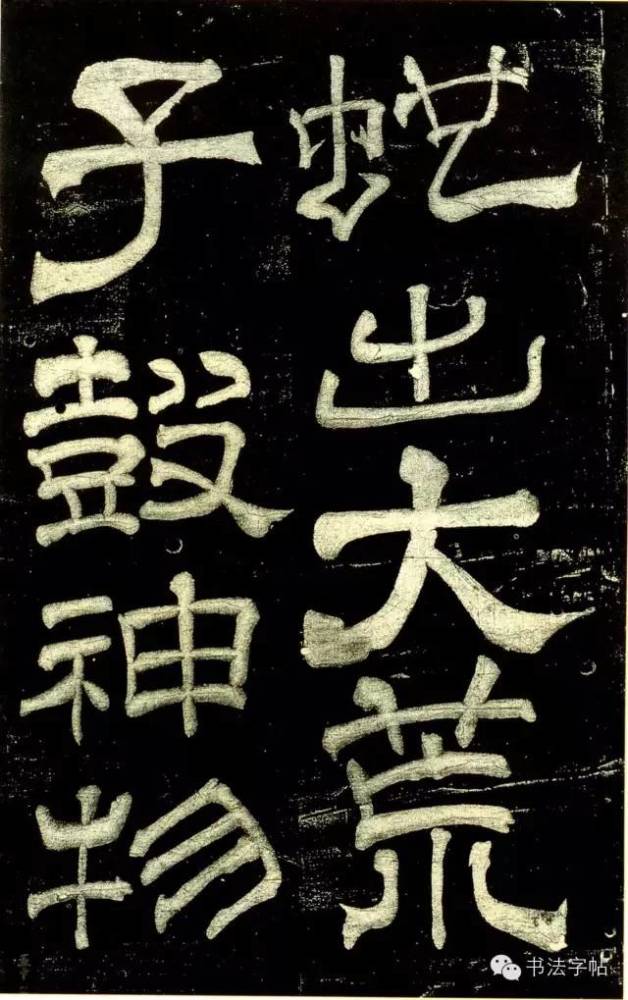 虵出大荒
子鼓神物
书法字帖